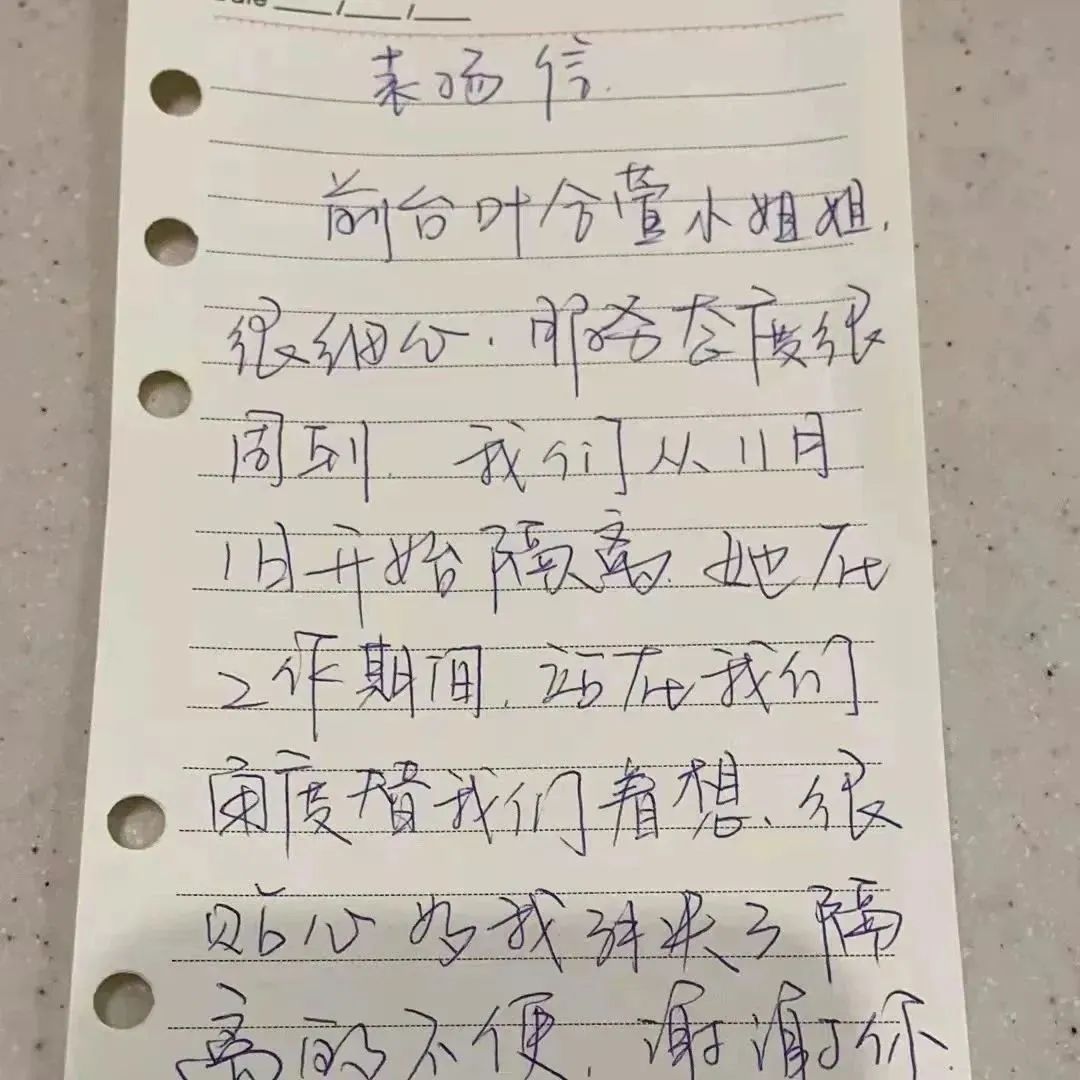 Date ___/___/___
表扬信.
前台叶含萱小姐姐.
很细心.服务态度很
周到.我们从11月
1日开始隔离.她在
工作期间.站在我们
角度替我们着想.很
贴心 为我解决了隔
离的不便.谢谢你